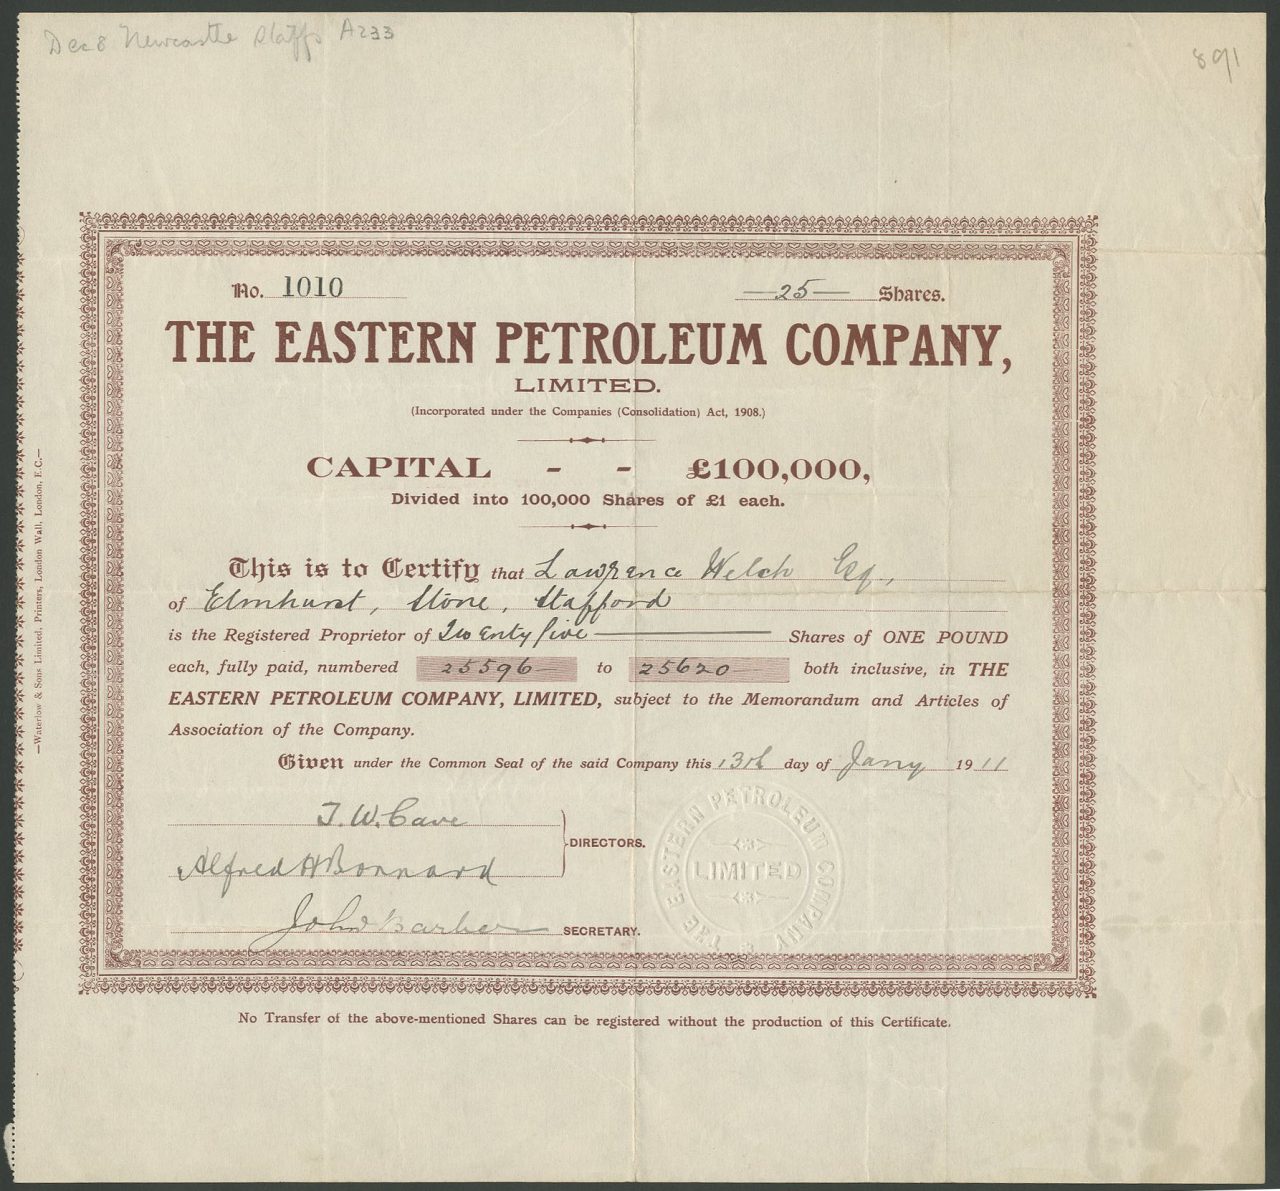 Dec 8 Newcastle Staffs A233
891
No. 1010
—25— Shares.
THE EASTERN PETROLEUM COMPANY,
LIMITED.
(Incorporated under the Companies (Consolidation) Act, 1908.)
CAPITAL - - £100,000,
Divided into 100,000 Shares of £1 each.
This is to Certify that Lawrence Welch Esq.,
of Elmhurst, Stone, Stafford
is the Registered Proprietor of Twenty five — Shares of ONE POUND
each, fully paid, numbered 25596 — to 25620 both inclusive, in THE
EASTERN PETROLEUM COMPANY, LIMITED, subject to the Memorandum and Articles of
Association of the Company.
Given under the Common Seal of the said Company this 13th day of Jany 1911
T. W. Cave
DIRECTORS.
Alfred H Bonnard
John Barber SECRETARY.
THE EASTERN PETROLEUM COMPANY
LIMITED
No Transfer of the above-mentioned Shares can be registered without the production of this Certificate.
—Waterlow & Sons Limited, Printers, London Wall, London, E.C.—